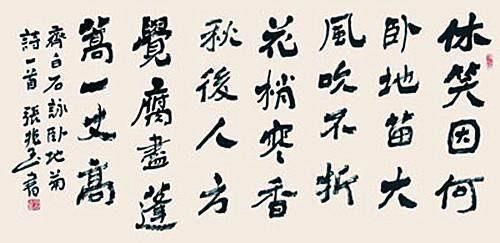 休笑因何
卧地苗大
風吹不折
花梢寒香
秋後人方
覺腐盡蓬
蒿一丈高
齊白石詠卧地菊
詩一首 張兆玉書